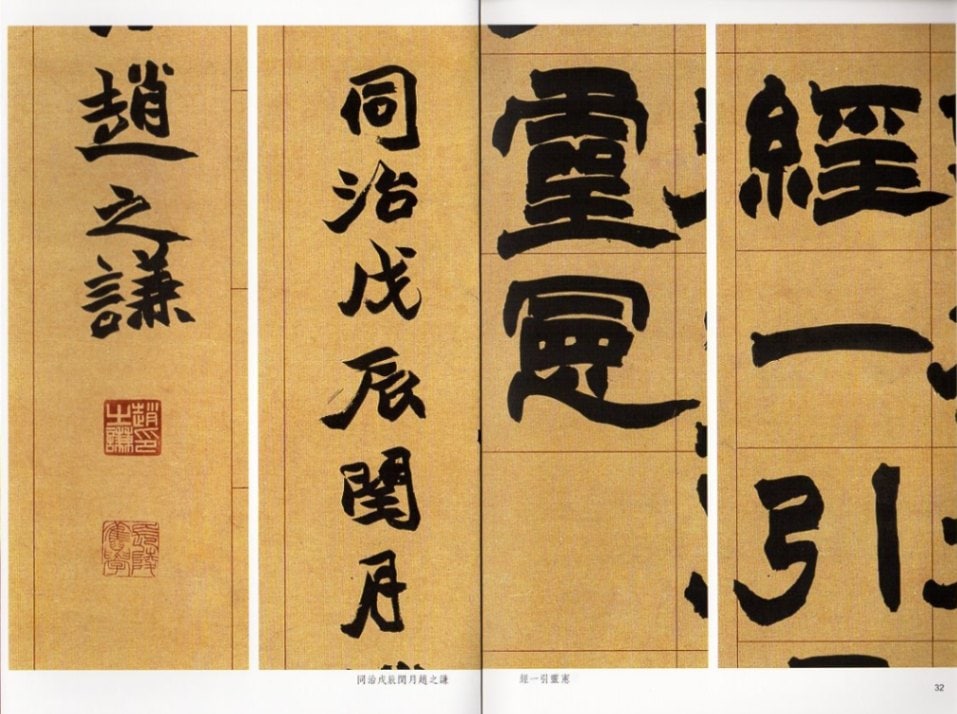 經一引
靈憲
同治戊辰閏月
趙之謙
趙印之謙
長陵舊學
經一引靈憲
同治戊辰閏月趙之謙
32